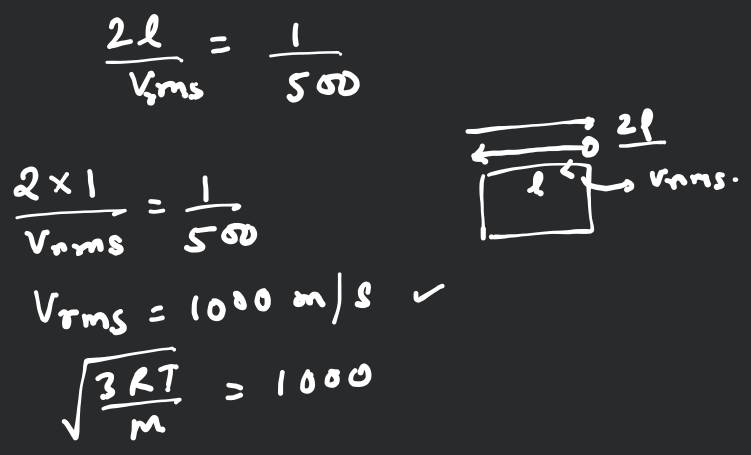 2l / Vrms = 1 / 500
2l
l
Vrms.
2 × 1 / Vrms = 1 / 500
Vrms = 1000 m/s ✓
√(3RT / M) = 1000